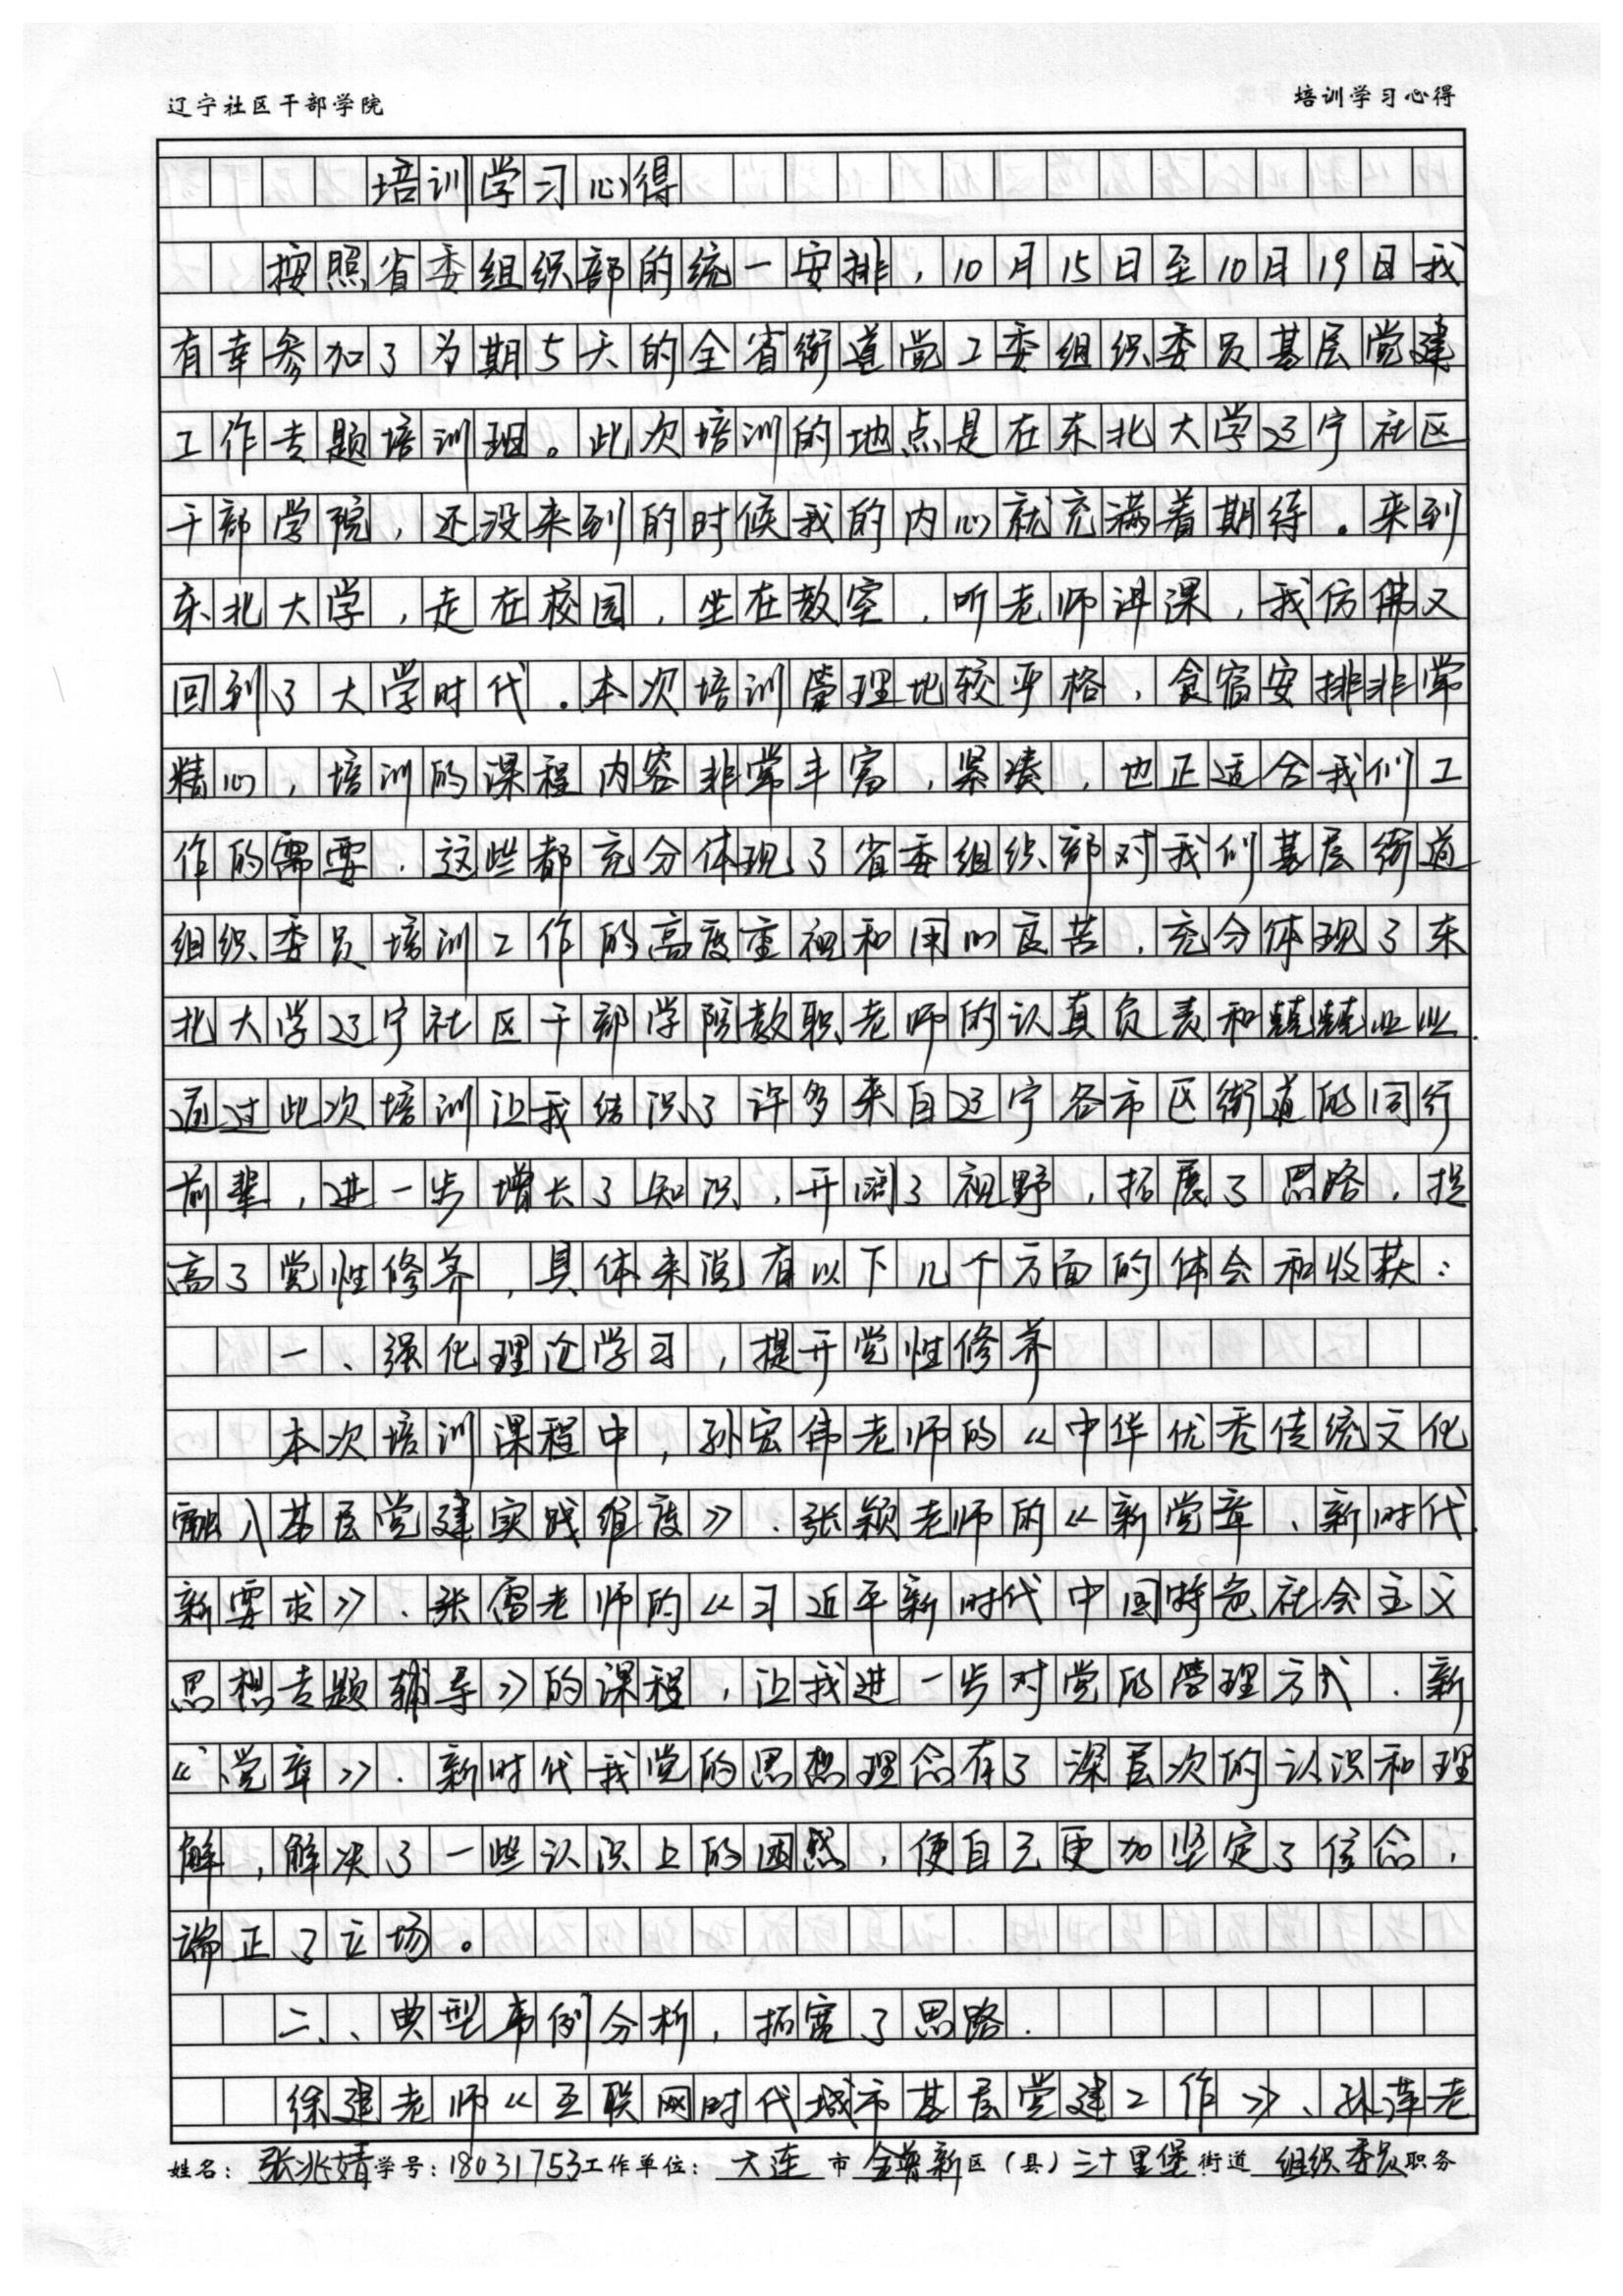 辽宁社区干部学院
培训学习心得
培训学习心得
按照省委组织部的统一安排，10月15日至10月19日我
有幸参加了为期5天的全省街道党工委组织委员基层党建
工作专题培训班。此次培训的地点是在东北大学辽宁社区
干部学院，还没来到的时候我的内心就充满着期待。来到
东北大学，走在校园，坐在教室，听老师讲课，我仿佛又
回到了大学时代。本次培训管理地较严格，食宿安排非常
精心，培训的课程内容非常丰富，紧凑，也正适合我们工
作的需要。这些都充分体现了省委组织部对我们基层街道
组织委员培训工作的高度重视和用心良苦，充分体现了东
北大学辽宁社区干部学院教职老师的认真负责和兢兢业业.
通过此次培训让我结识了许多来自辽宁各市区街道的同行
前辈，进一步增长了知识，开阔了视野，拓展了思路，提
高了党性修养，具体来说有以下几个方面的体会和收获：
一、强化理论学习，提升党性修养
本次培训课程中，孙宏伟老师的《中华优秀传统文化
融入基层党建实践维度》、张颖老师的《新党章、新时代.
新要求》、张雷老师的《习近平新时代中国特色社会主义
思想专题辅导》的课程，让我进一步对党的管理方式、新
《党章》、新时代我党的思想理念有了深层次的认识和理
解，解决了一些认识上的困惑，使自己更加坚定了信念，
端正了立场。
二、典型事例分析，拓宽了思路.
徐建老师《互联网时代城市基层党建工作》、孙萍老
姓名：张兆婧学号：18031753工作单位：大连市金普新区（县）三十里堡街道组织委员职务